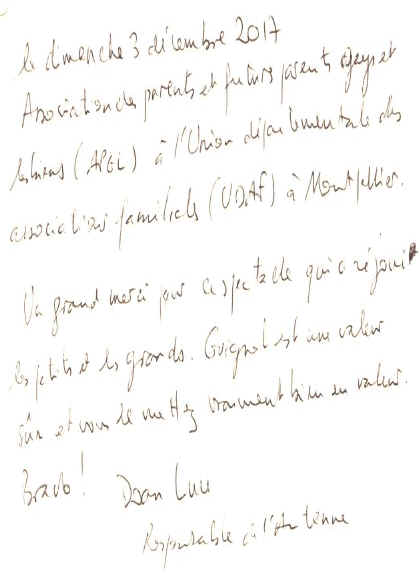 le dimanche 3 décembre 2017
Association des parents et futurs parents gays et
lesbiens (APGL) à l'Union départementale des
associations familiales (UDAF) à Montpellier.
Un grand merci pour ce spectacle qui a réjoui
les petits et les grands. Guignol est une valeur
sûre et vous le mettez vraiment bien en valeur.
Bravo! Luc
Responsable de l'Antenne